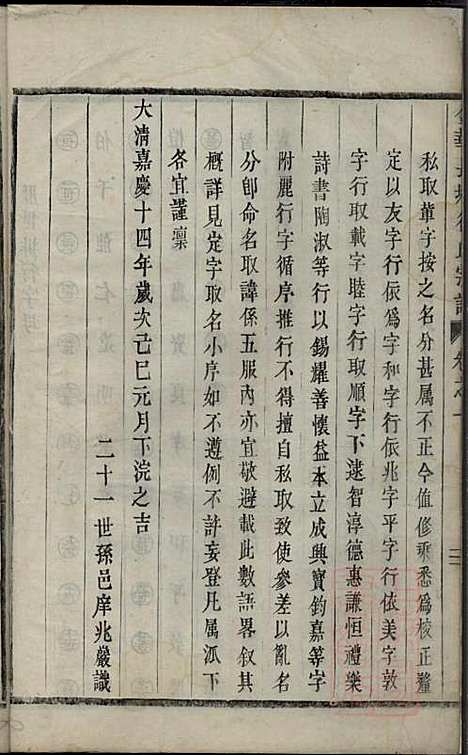 私取葷字按之名分甚属不正今值修乘悉爲校正釐
定以友字行依爲字和字行依兆字平字行依美字敦
字行取載字睦字行取順字下逮智淳德惠謙恒禮樂
詩書陶淑等行以錫耀善懷益本立成興寶鈞嘉等字
附麗行字循序推行不得擅自私取致使參差以亂名
分卽命名取諱係五服內亦宜敬避載此數語畧叙其
概詳見定字取名小序如不遵例不許妄登凡属派下
各宜謹凜
大清嘉慶十四年歲次己巳元月下浣之吉
二十一世孫邑庠兆嚴識